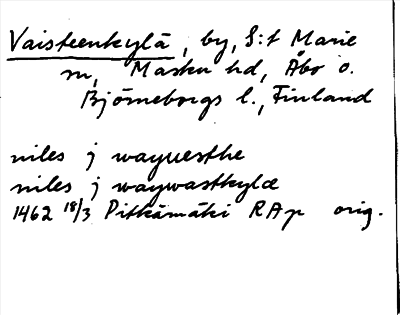 Vaisteenkylä, by, S:t Marie
m, Masku hd, Åbo o.
Björneborgs l., Finland
niles j wayuesthe
niles j waywastkylæ
1462 18/3 Pitkämäki RAp orig.